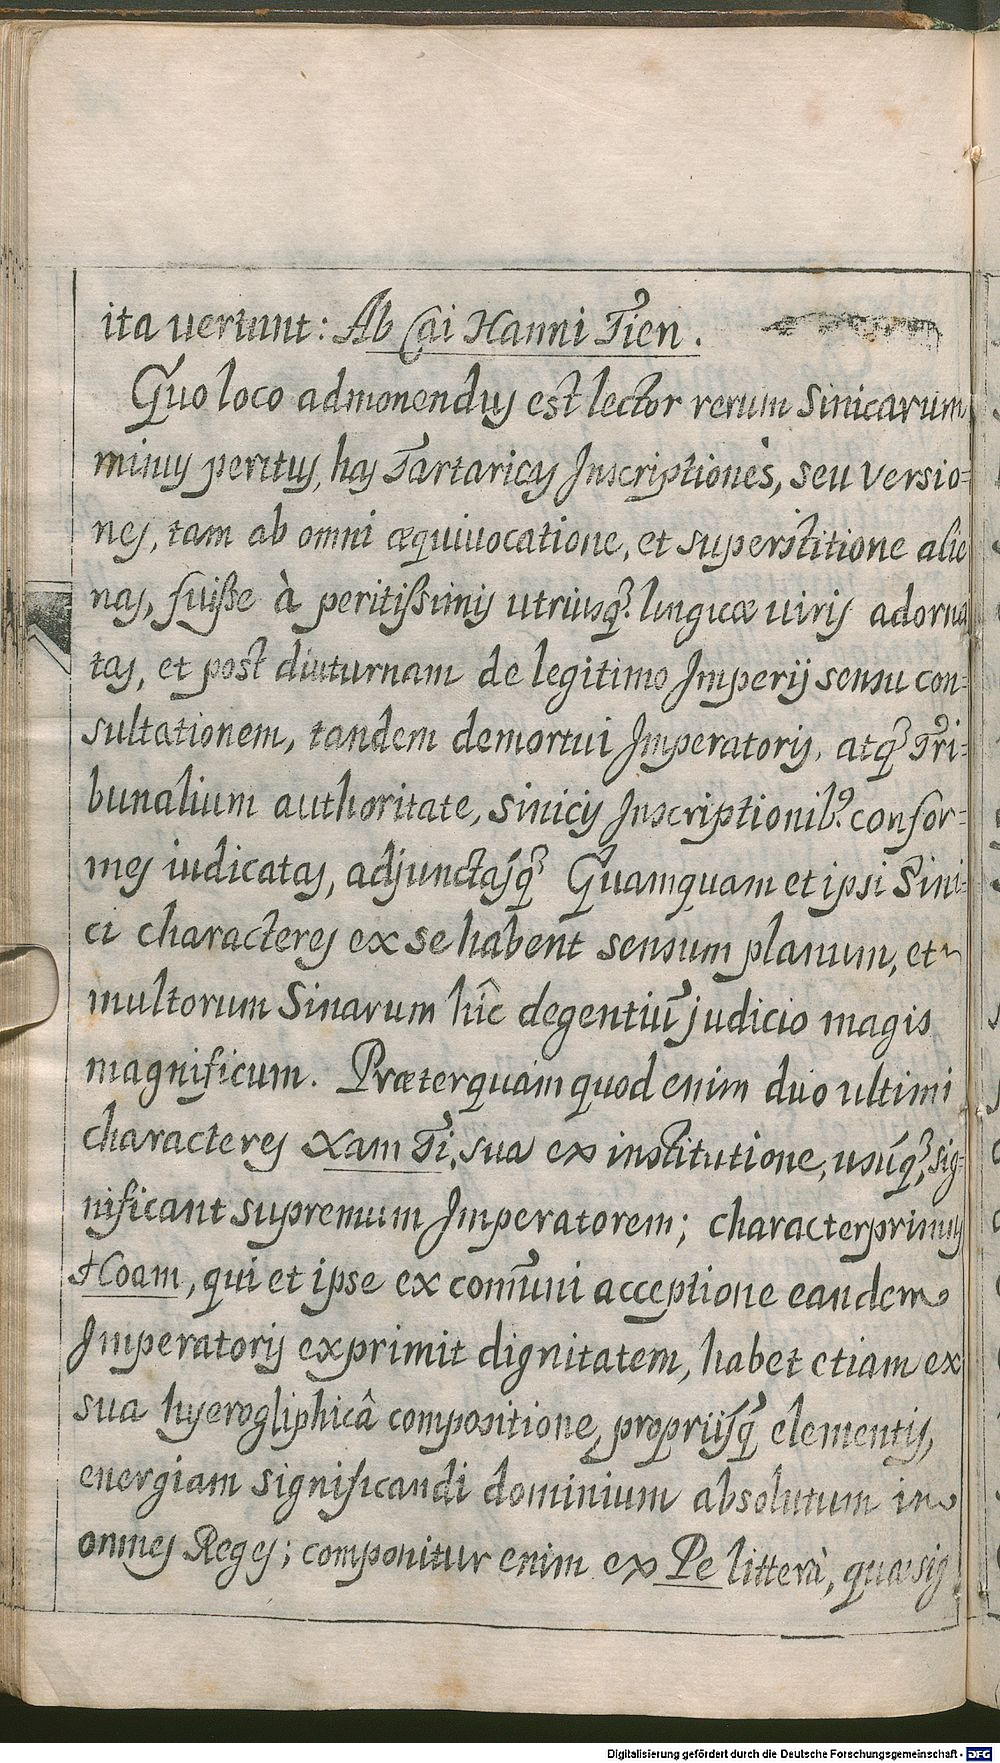 ita vertunt: Ab Cai Hanni Tien.
Quo loco admonendus est lector rerum Sinicarum
minus peritus, has Tartaricas Inscriptiones, seu versio=
nes, tam ab omni æquivocatione, et superstitione alie
nas, fuiße à peritißimis utriusq; linguæ viris adorna
tas, et post diuturnam de legitimo Imperij sensu con=
sultationem, tandem demortui Imperatoris, atq; Tri=
bunalium authoritate, Sinicis Inscriptionib9 confor=
mes iudicatas, adjunctasq; Quamquam et ipsi Sini=
ci characteres ex se habent sensum planum, et
multorum Sinarum hîc degentiū judicio magis
magnificum. Præterquam quod enim duo ultimi
characteres Xam Ti, sua ex institutione, usuq;, sig=
nificant supremum Imperatorem; character primus
Hoam, qui et ipse ex com̄uni acceptione eandem
Imperatoris exprimit dignitatem, habet etiam ex
sua hyerogliphicâ compositione, proprijsq; elementis,
energiam significandi dominium absolutum in
omnes Reges; componitur enim ex Pe litterà, quæ sig
Digitalisierung gefördert durch die Deutsche Forschungsgemeinschaft - DFG